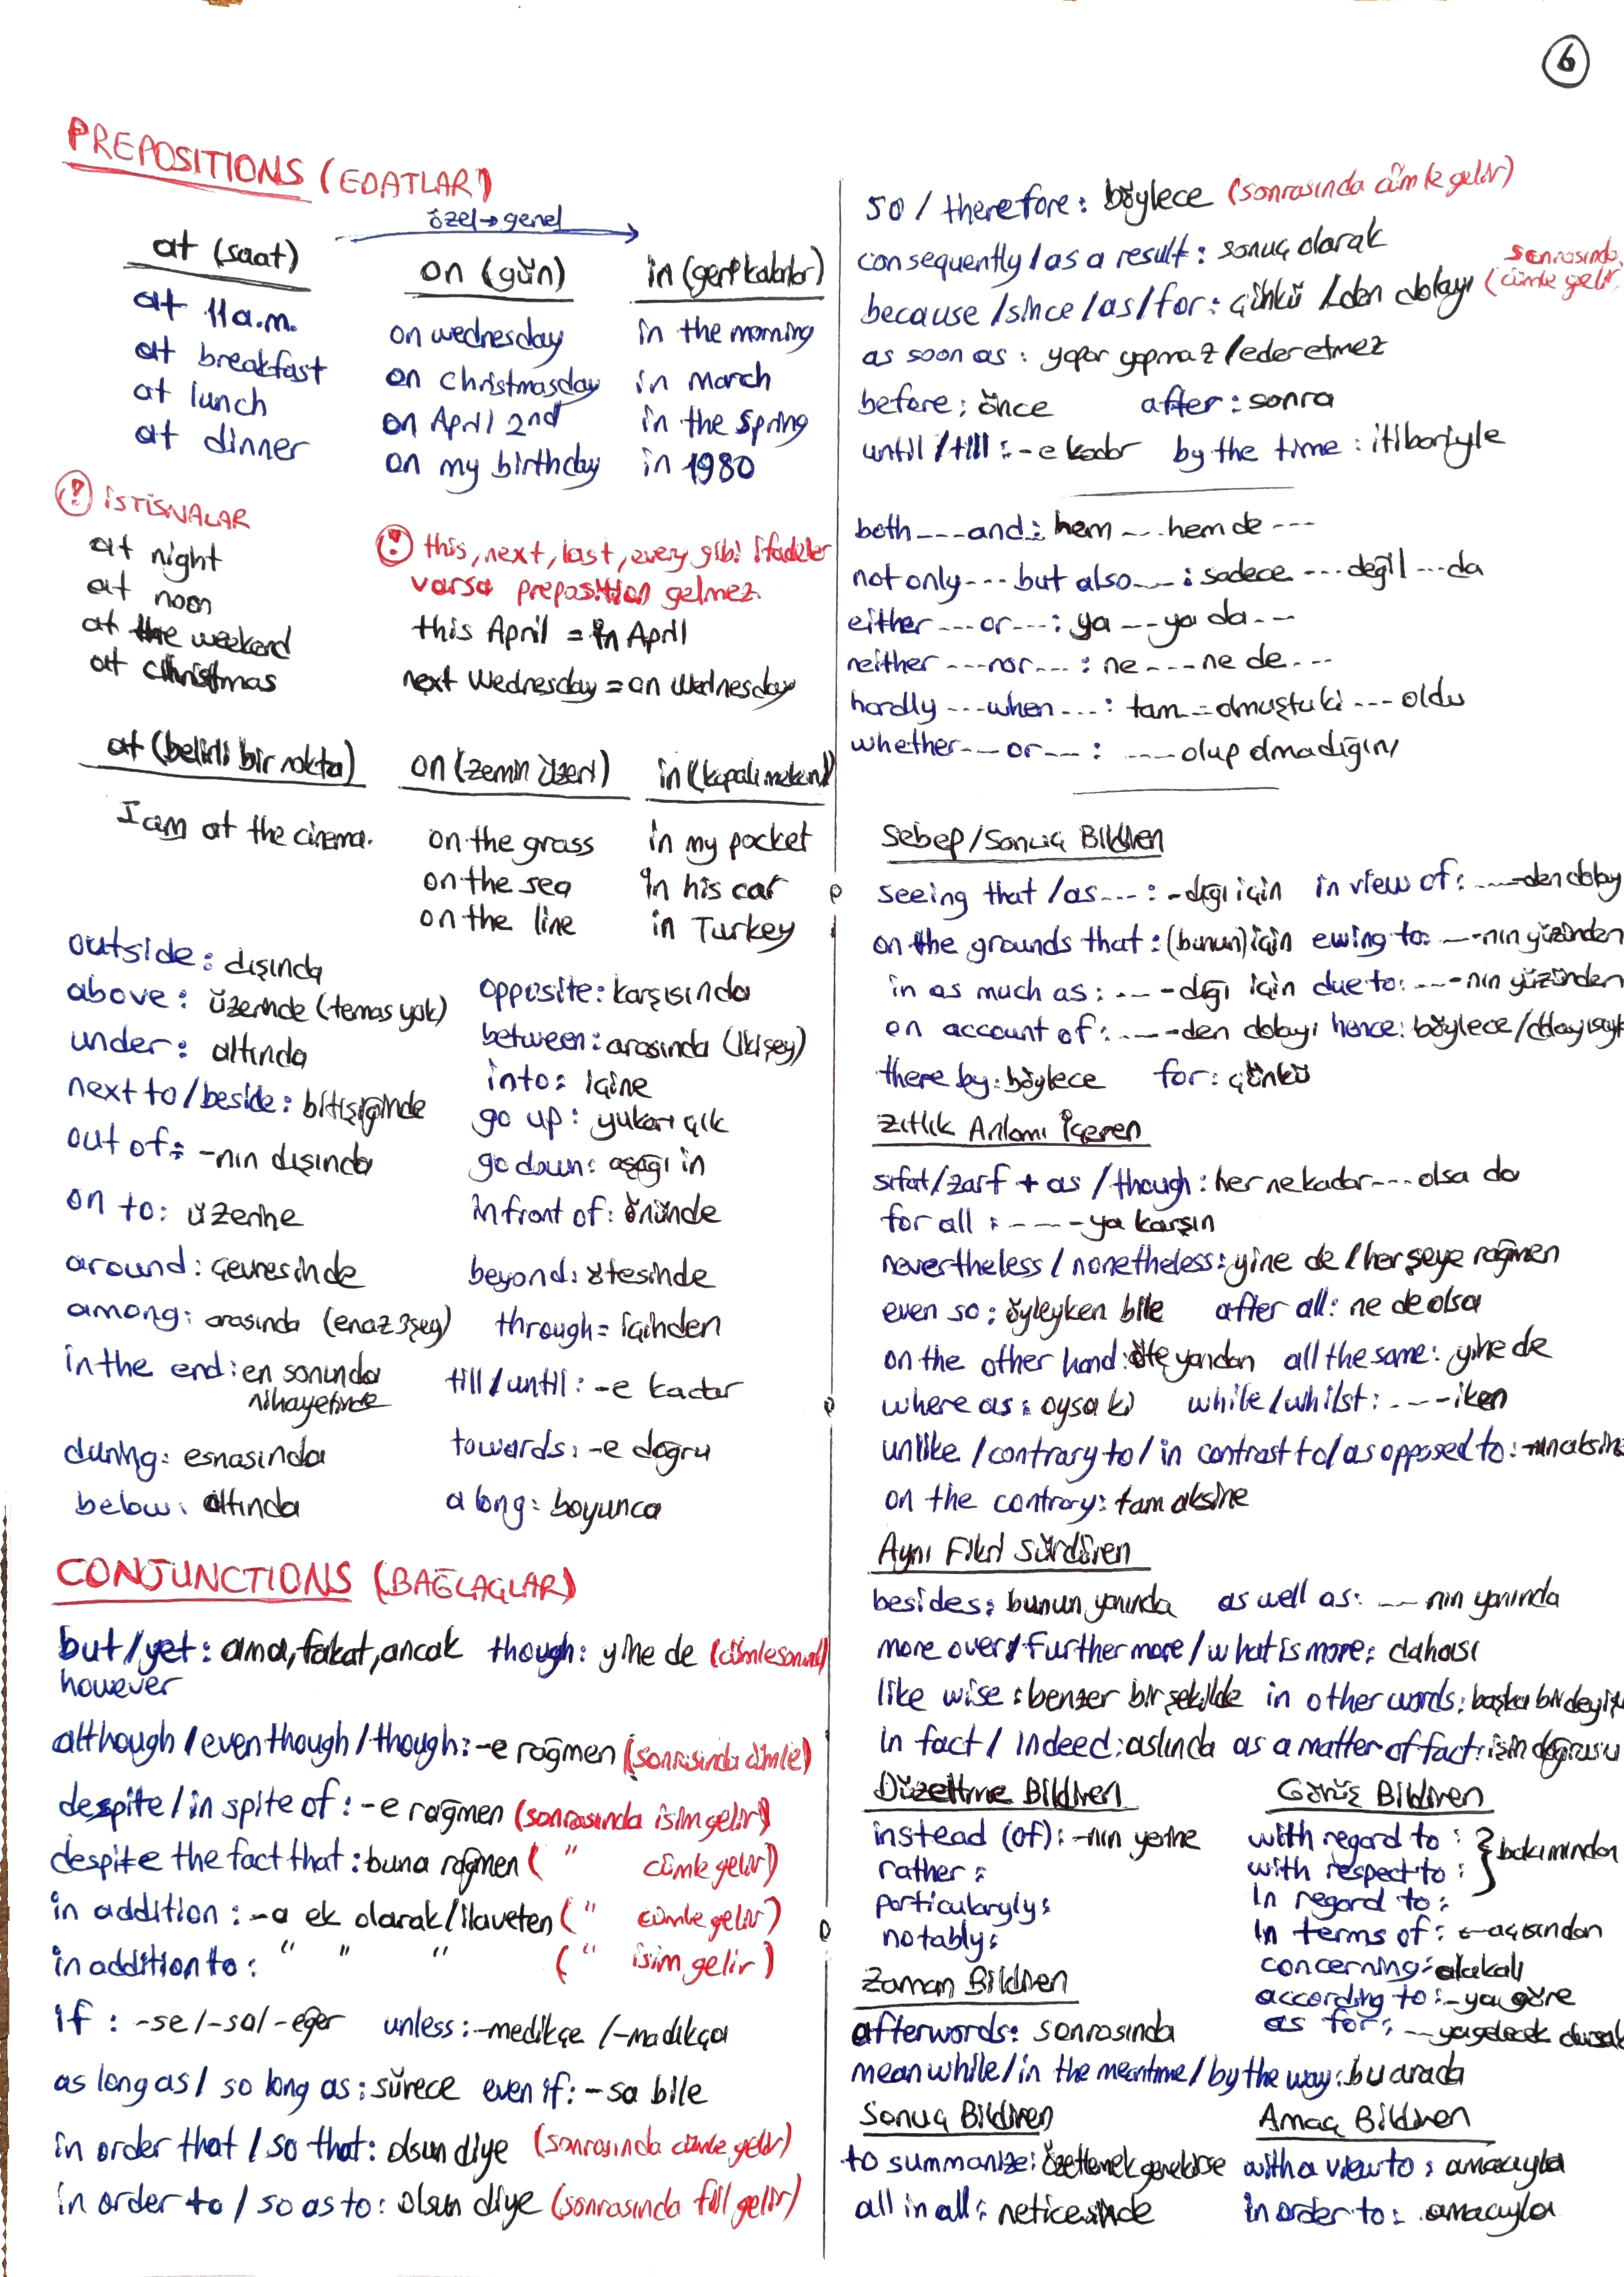 6
PREPOSITIONS (EDATLAR)
özel→genel
at (saat)
at 11 a.m.
at breakfast
at lunch
at dinner
on (gün)
on wednesday
on christmasday
on April 2nd
on my birthday
in (geri kalanlar)
in the morning
in march
in the spring
in 1980
! İSTİSNALAR
at night
at noon
at the weekend
at christmas
! this, next, last, every gibi ifadeler
varsa preposition gelmez.
this April = in April
next Wednesday = on Wednesday
at (belirli bir nokta)
I am at the cinema.
on (zemin üzeri)
on the grass
on the sea
on the line
in (kapalı mekan)
in my pocket
in his car
in Turkey
outside: dışında
above: üzerinde (temas yok)
under: altında
next to/beside: bitişiğinde
out of: -nın dışında
on to: üzerine
around: çevresinde
among: arasında (en az 3 şey)
in the end: en sonunda
nihayetinde
during: esnasında
below: altında
opposite: karşısında
between: arasında (iki şey)
into: içine
go up: yukarı çık
go down: aşağı in
in front of: önünde
beyond: ötesinde
through= içinden
till/until: -e kadar
towards: -e doğru
a long: boyunca
CONJUNCTIONS (BAĞLAÇLAR)
but/yet: ama, fakat, ancak though: yine de (cümle sonu)
however
although/even though/though: -e rağmen (sonrasında cümle)
despite/in spite of: -e rağmen (sonrasında isim gelir)
despite the fact that: buna rağmen ( " cümle gelir)
in addition: -a ek olarak/ilaveten ( " cümle gelir)
in addition to: " " " ( " isim gelir)
if: -se/-sa/-eğer unless: -medikçe /-madıkça
as long as/ so long as: sürece even if: -sa bile
in order that / so that: olsun diye (sonrasında cümle gelir)
in order to / so as to: olsun diye (sonrasında fiil gelir)
so / therefore: böylece (sonrasında cümle gelir)
consequently / as a result: sonuç olarak
because /since /as /for: çünkü /den dolayı (sonrasında cümle gelir
as soon as: yapar yapmaz/eder etmez
before: önce after: sonra
until/till: -e kadar by the time: itibariyle
both ---and: hem --- hem de ---
not only --- but also---: sadece --- değil ---da
either ---or---: ya --- ya da ---
neither ---nor---: ne --- ne de ---
hardly ---when---: tam --olmuştu ki --- oldu
whether--- or ---: ---- olup olmadığını
Sebep/Sonuç Bildiren
seeing that /as---: -dığı için in view of: ----den dolayı
on the grounds that: (bunun) için ewing to: ---nın yüzünden
in as much as: ---dığı için due to: ---nın yüzünden
on account of: ----den dolayı hence: böylece/dolayısıyl
there by: böylece for: çünkü
Zıtlık Anlamı İçeren
sıfat/zarf + as /though: her ne kadar--- olsa da
for all: ----ya karşın
nevertheless / nonetheless: yine de /her şeye rağmen
even so: öyleyken bile after all: ne de olsa
on the other hand: öte yandan all the same: yine de
where as: oysa ki while/whilst: ----iken
unlike /contrary to/ in contrast to/as opposed to: -nın aksine
on the contrary: tam aksine
Aynı Fikri Sürdüren
besides: bunun yanında as well as: --- nın yanında
more over/Further more/what is more: dahası
like wise: benzer bir şekilde in other words: başka bir deyiş
in fact/ indeed: aslında as a matter of fact: işin doğrusu
Düzeltme Bildiren
instead (of): -nın yerine
rather:
particularyly:
notably:
Görüş Bildiren
with regard to: } bakımından
with respect to:
In regard to:
In terms of: --açısından
concerning: alakalı
according to: -ya göre
as for: --ya gelecek olursak
Zaman Bildiren
afterwords: sonrasında
mean while/in the meantime/by the way: bu arada
Sonuç Bildiren
to summarize: özetlemek gerekirse
all in all: neticesinde
Amaç Bildiren
with a view to: amacıyla
in order to: amacıyla